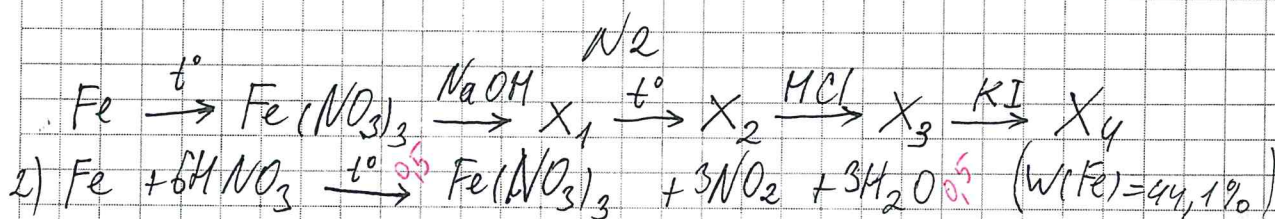 N2
Fe —t°→ Fe(NO₃)₃ —NaOH→ X₁ —t°→ X₂ —HCl→ X₃ —KI→ X₄
1) Fe + 6HNO₃ —t°→ 0,5 Fe(NO₃)₃ + 3NO₂ + 3H₂O 0,5 (W(Fe)=44,1%)